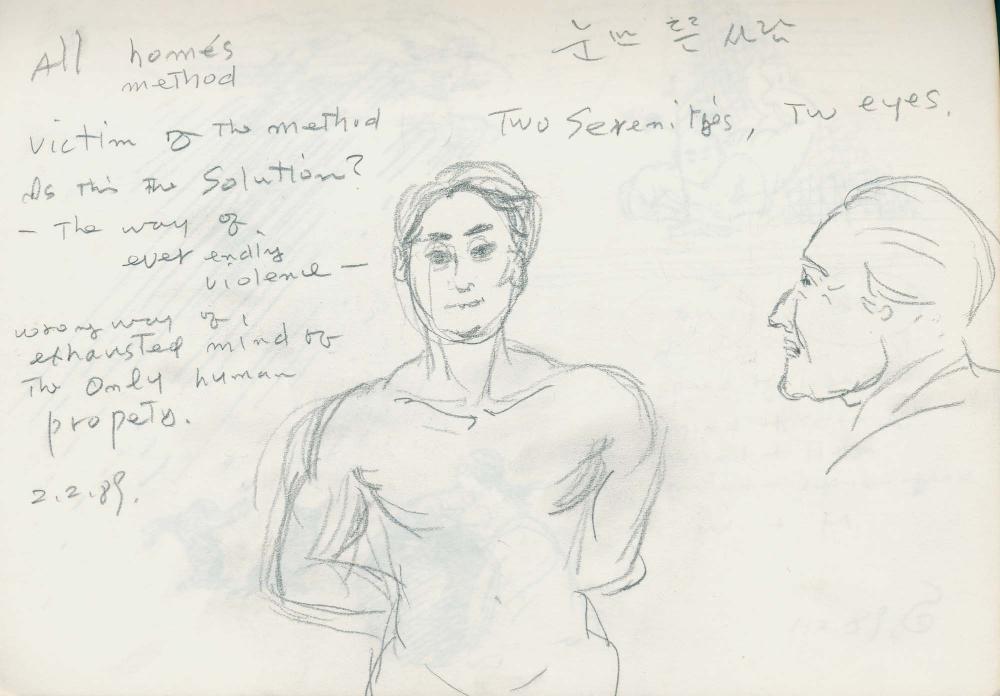 All homes
method
victim of the method
Is this the Solution?
- The way of
ever endly
violence -
wrong way of,
exhausted mind of
The Only human
propets.
2.2.89.
눈만 흐른 사람
Two Serenitys, Tw eyes.